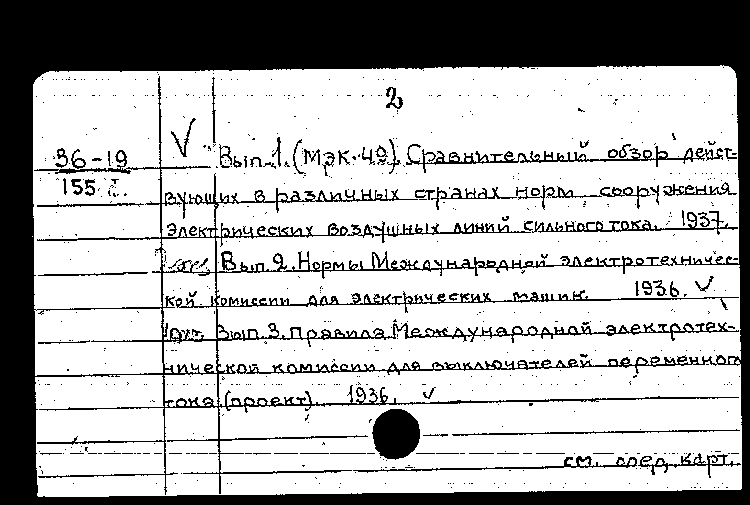 2
36-19
155
V Вып.1. (МЭК-49). Сравнительный обзор дейст-
вующих в различных странах норм сооружения
электрических воздушных линий сильного тока. 1937.
Вып.2. Нормы Международной электротехничес-
кой комиссии для электрических машин. 1936. V
Вып.3. Правила Международной электротех-
нической комиссии для выключателей переменного
тока (проект). 1936. V
см. след. карт.